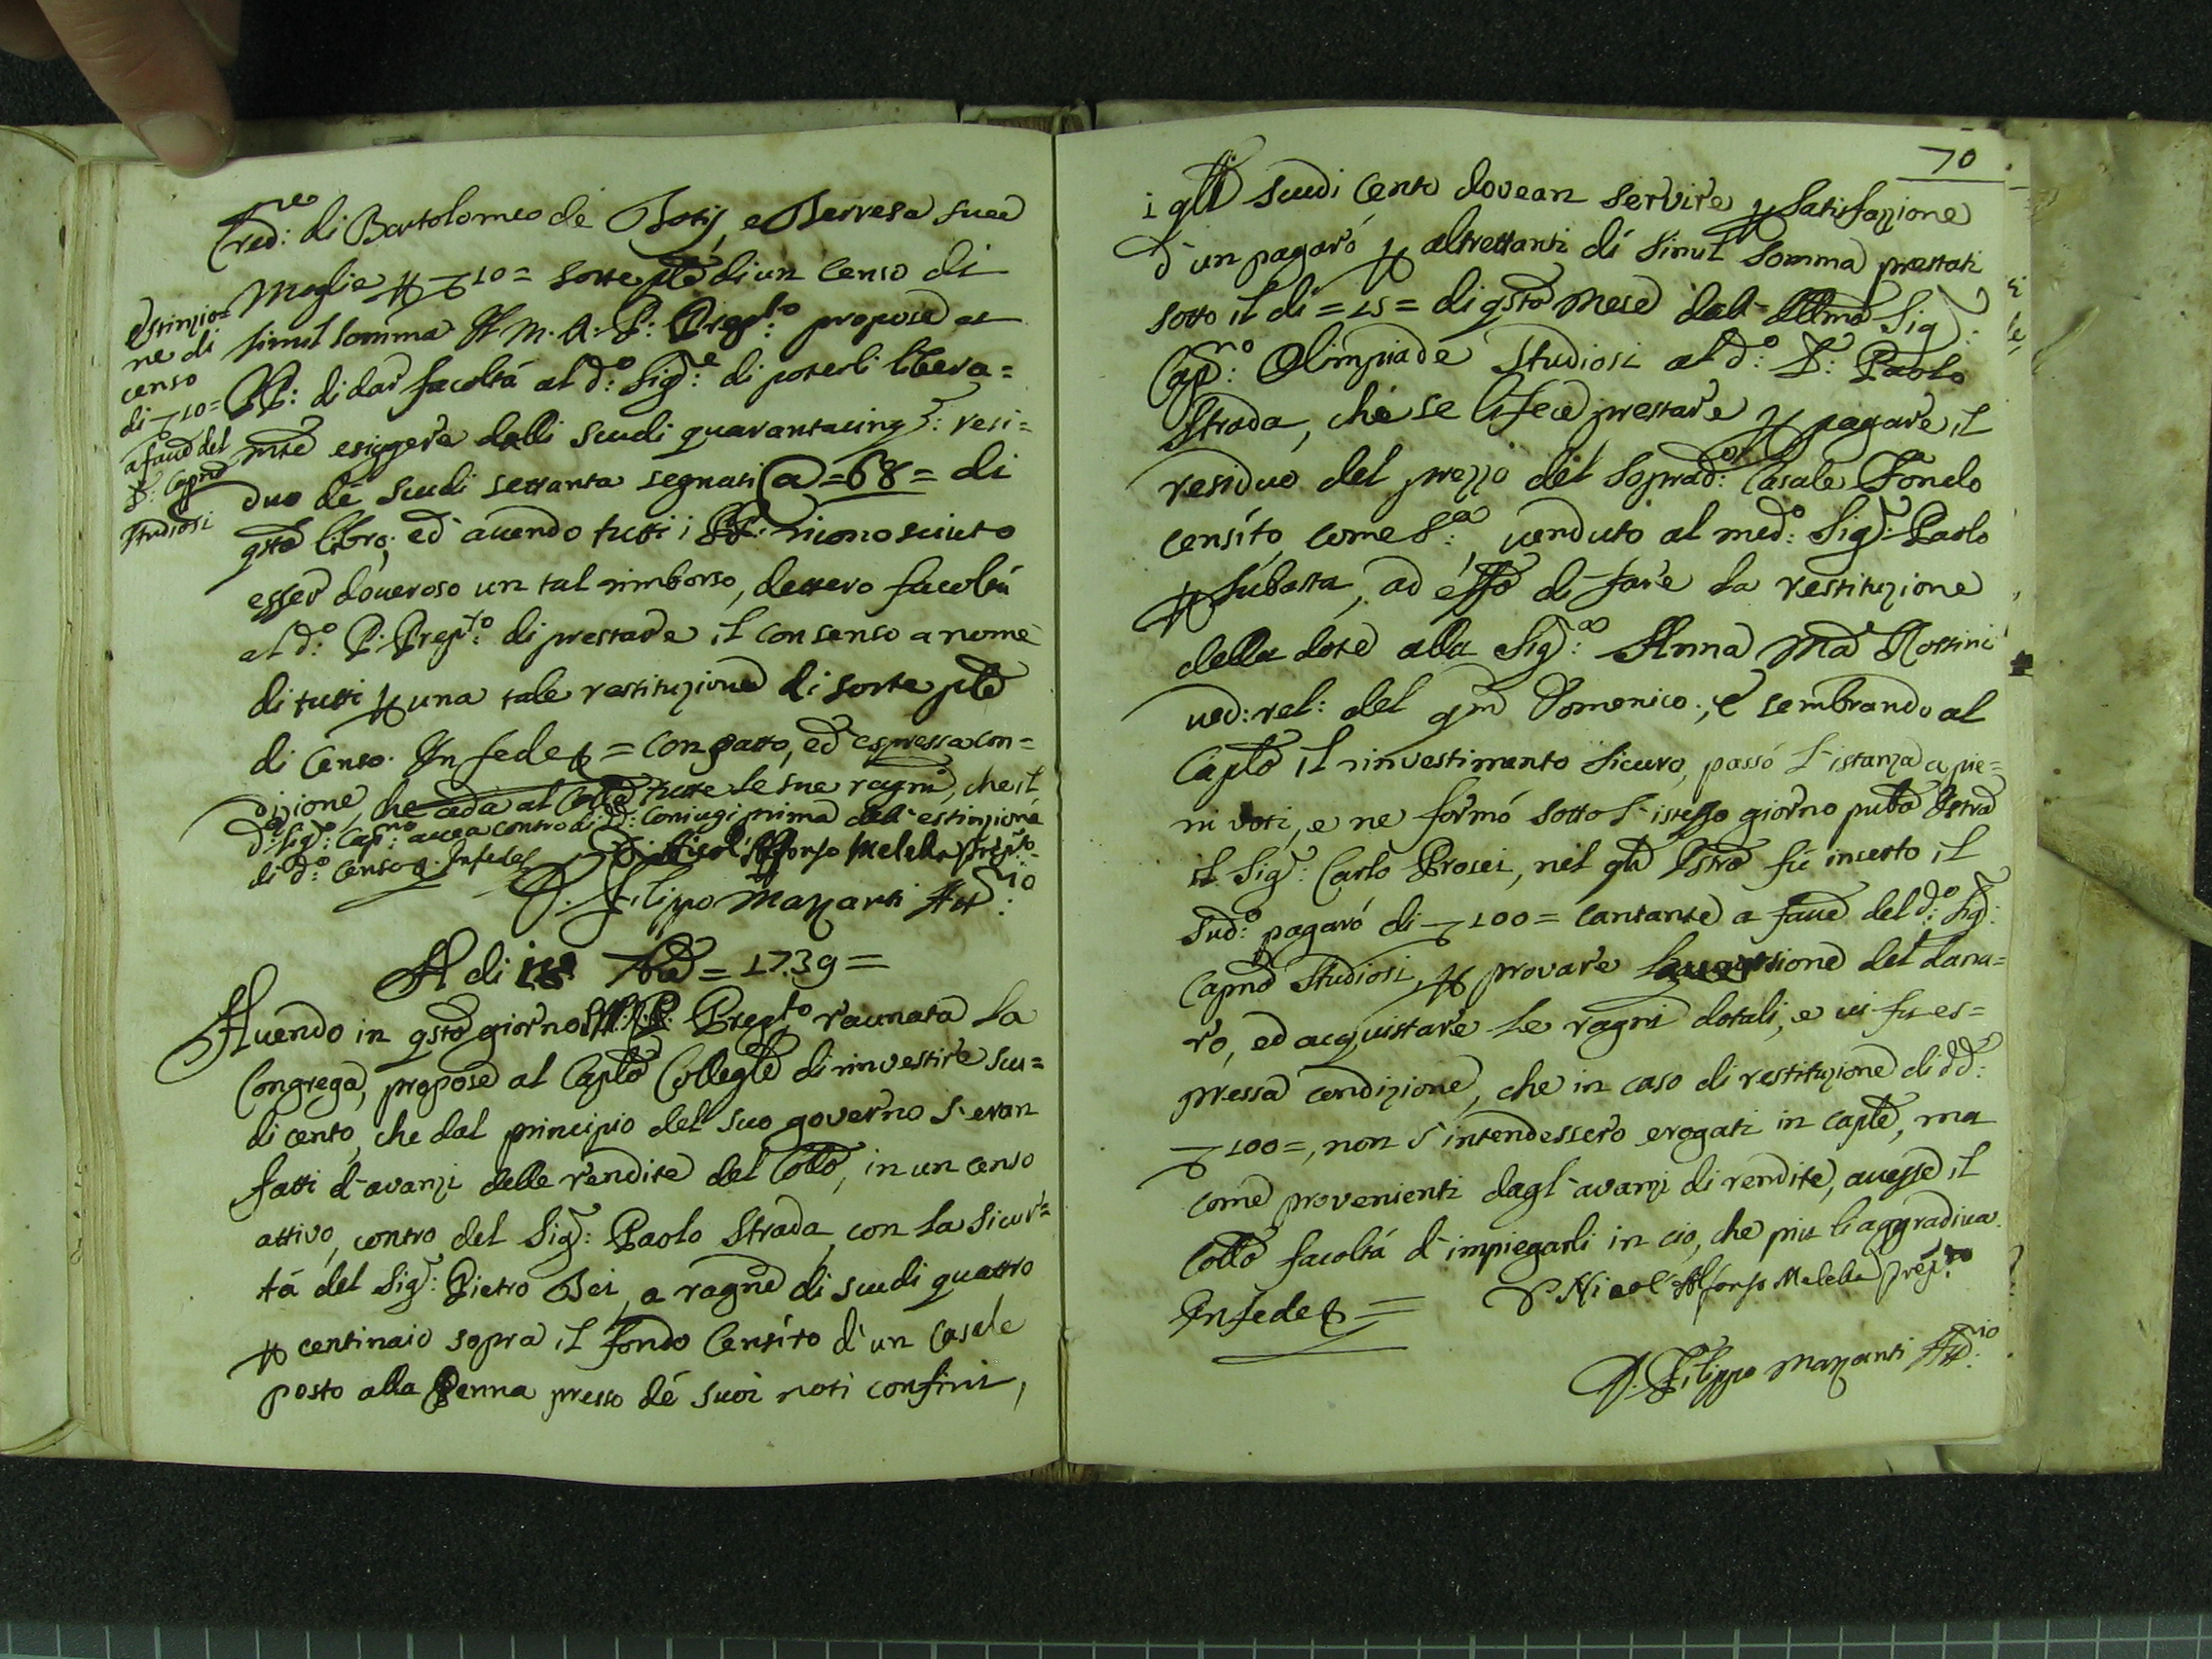 Cred:re di Bartolomeo de Botij, e Berresa sua
Moglie p ∇10= sorte ple di un Censo di
simil somma Il M. R. P: Prep:to propose ai
PP: di dar facoltà al d:o Sig:e di poterli libera=
mte esiggere dalli scudi quarantacinq: resi=
duo de scudi settanta segnati @=68= di
qsto libro; ed avendo tutti i PP: riconosciuto
esser doveroso un tal rimborso, dettero facoltà
al d:o P. Prep:to di prestare il consenso a nome
di tutti p una tale restituzione di sorte ple
di Censo. In fede & = con patto, ed espressa con=
dizione, che ceda al Collo tutte le sue ragni, che il
d:o Sig:e Cap:no avea contro di dd: Coniugi prima dell'estinzione
di d:o Censo &. In fede &
D: Nicol' Alfonso Melelli Prep:to
D. Filippo Mazzanti Att:rio
Estinzio=
ne di
censo
di ∇10=
a faue del
S: Capno
Studiosi
A di 18. Ade = 1739=
Auendo in qsto giorno Il M.R.P. Prep:to raunata la
Congrega, propose al Caplo Collegle di rinvestire scu=
di cento, che dal principio del suo governo s'eran
fatti d'avanzi delle rendite del Collo, in un censo
attivo, contro del Sig: Paolo Strada, con la sicur=
tà del Sig: Pietro Bei, a ragne di scudi quattro
p centinaio sopra il fondo Censito d'un Casale
posto alla Penna presso de suoi noti confini,
70
i qli scudi Cento dovean servire p satisfazione
d'un pagarò p altrettanti di simil somma prestati
sotto il di =15= di qsto Mese dall' Illmo Sig:
Cap:no Olimpiade Studiosi al d:o S: Paolo
Strada, che se li fece prestare p pagare il
residuo del prezzo del soprad:o Casale Fondo
censito, come S:a, venduto al med:o Sig: Paolo
p subasta, ad effo di fare la restituzione
della dote alla Sig:a Anna Ma Rossini
ved: rel: del qm Domenico; e sembrando al
Caplo il rinvestimento sicuro, passò l'istanza a pie=
ni voti, e ne formò sotto l'istesso giorno pubo Istro
il Sig: Carlo Prosei, nel qle Istro fù inserto il
sud:o pagarò di ∇100= cantante a faue del d:o Sig:
Capno Studiosi, p provare la versione del dana=
ro, ed acquistare le ragni dotali, e vi fu es=
pressa condizione, che in caso di restituzione di dd:
∇100=, non s'intendessero erogati in caple, ma
come provenienti dagl'avanzi di rendite, avesse il
Collo facoltà d'impiegarli in ciò, che più li aggradiva.
In fede & =
D Nicol' Alfonso Melelli Prep:to
D. Filippo Mazzanti Att:rio